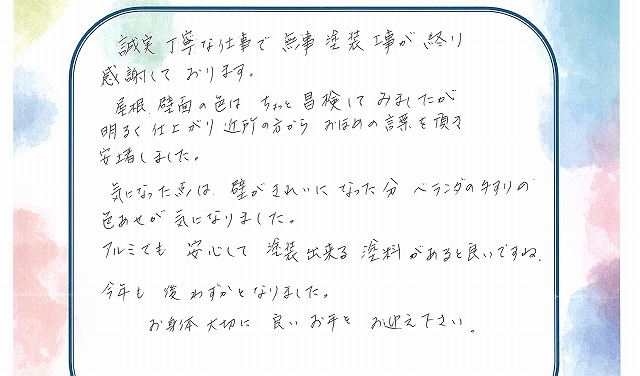 誠実 丁寧な仕事で 無事 塗装工事が 終り
感謝して おります。
屋根、壁面の色は ちょっと 冒険して みましたが
明るく 仕上がり 近所の方から おほめの言葉を頂き
安堵しました。
気になった点は、壁がきれいに なった分 ベランダの手すりの
色あせが 気になりました。
アルミでも 安心して 塗装出来る 塗料があると良いですね。
今年も 後わずかとなりました。
お身体 大切に 良い お年を お迎え下さい。